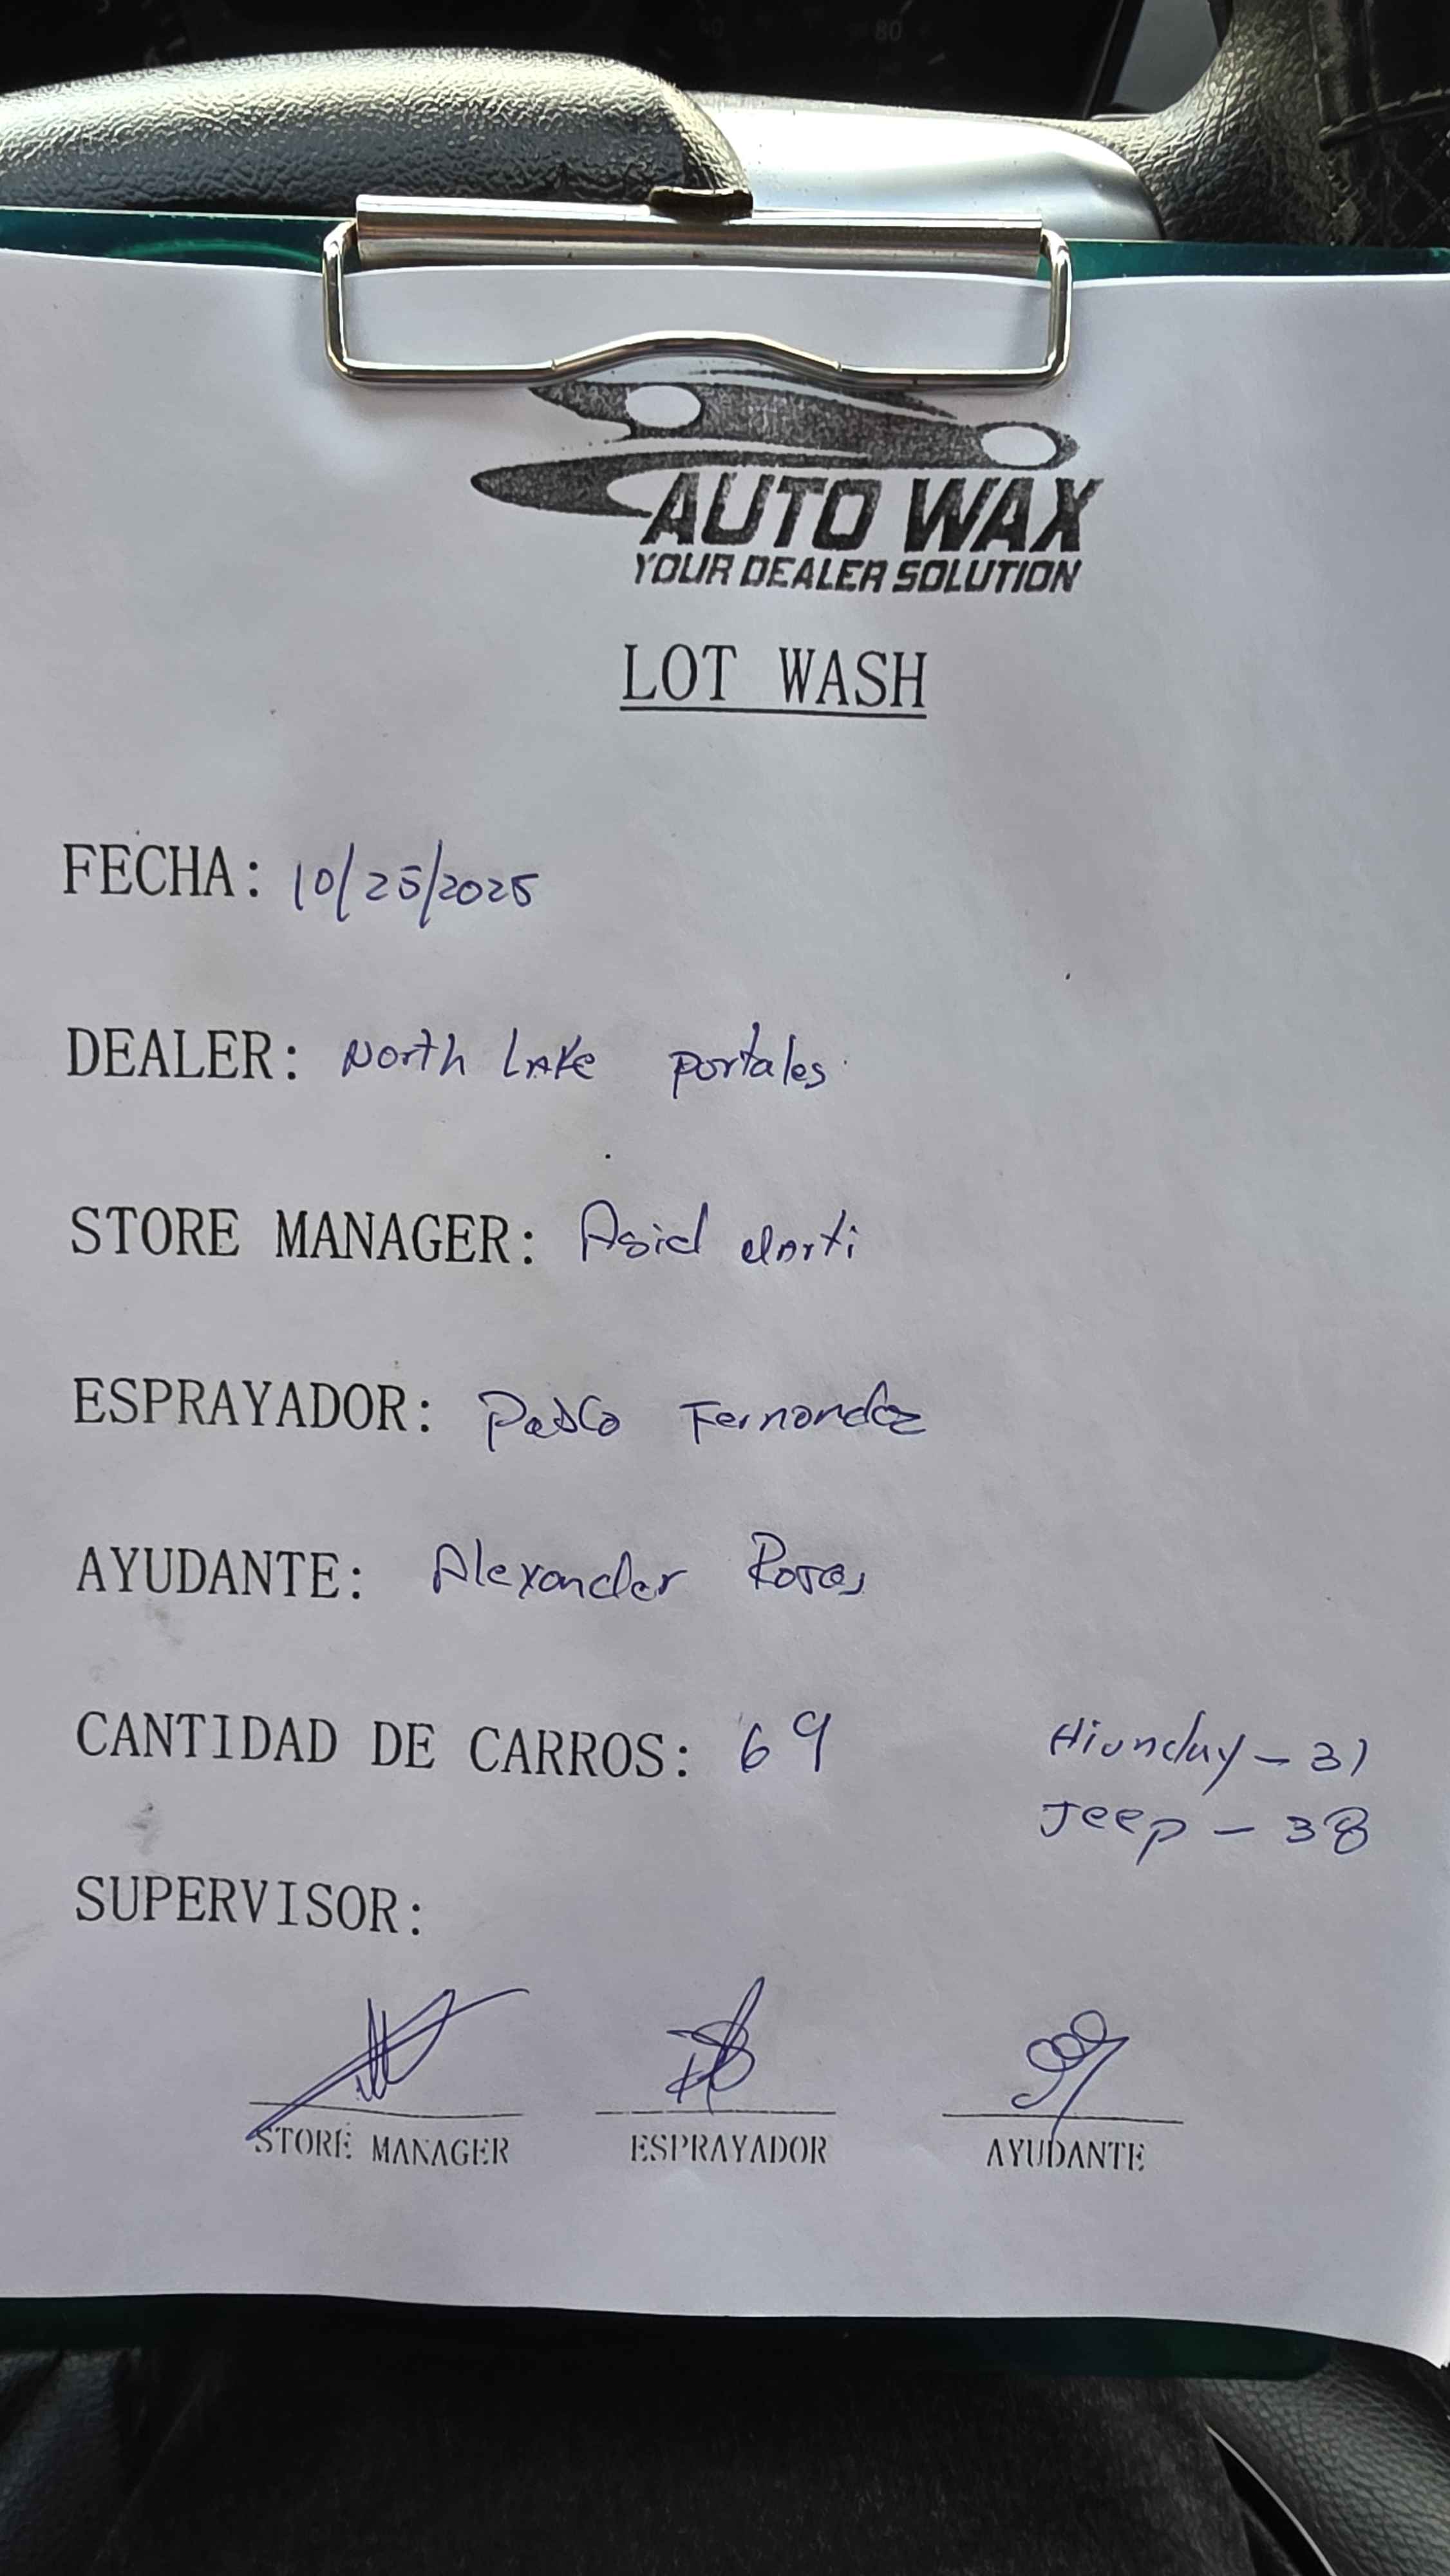 AUTO WAX
YOUR DEALER SOLUTION
LOT WASH
FECHA: 10/25/2025
DEALER: North Lake portales
STORE MANAGER: Asid Marti
ESPRAYADOR: Pablo Fernandez
AYUDANTE: Alexander Rosas
CANTIDAD DE CARROS: 69 Hiunday - 31
Jeep - 38
SUPERVISOR:
STORE MANAGER ESPRAYADOR AYUDANTE